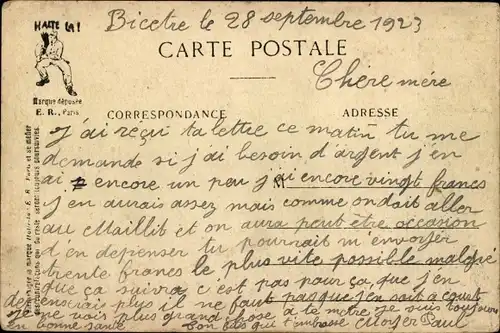 Bicetre le 28 septembre 1923
HALTE LA!
CARTE POSTALE
Chère mère
Marque déposée
E. R., Paris
CORRESPONDANCE
ADRESSE
j'ai reçu ta lettre ce matin tu me
demande si j'ai besoin d'argent j'en
ai encore un peu j'ai encore vingt francs
j'en aurais assez mais comme on doit aller
au Maillit et on aura peut être occasion
d'en depenser tu pourrait m envoyer
trente francs le plus vite possible malgre
que ça suivra c'est pas pour ça, que j'en
depenserais plus il ne faut pas que j'en soit a court
je ne vois plus grand chose à te mettre je suis toujours
en bonne santé. Ton fils qui t'embrasse Paul